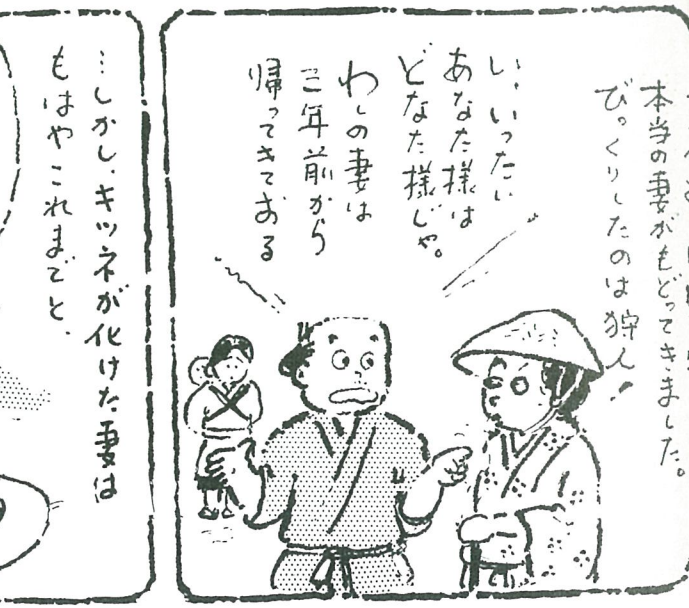 本当の妻がもどってきました。
びっくりしたのは狩人!
い、いったい
あなた様は
どなた様じゃ。
わしの妻は
三年前から
帰ってきておる
…しかし、キツネが化けた妻は
もはやこれまでと、